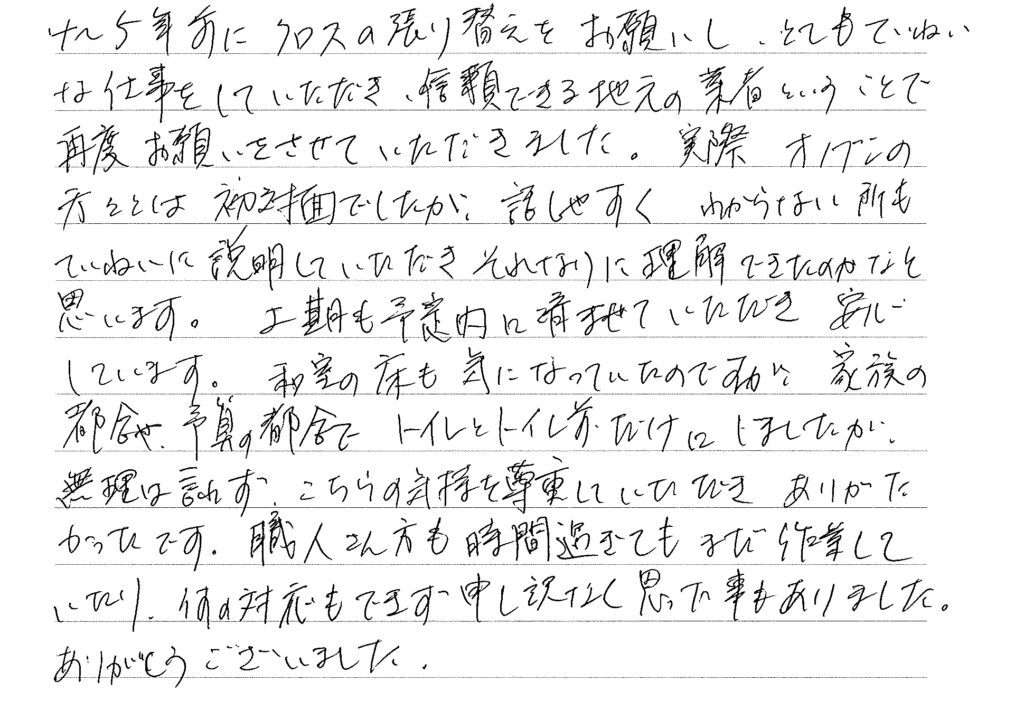 4〜5年前にクロスの張り替えをお願いし、とてもていねい
な仕事をしていただき、信頼できる地元の業者ということで
再度お願いをさせていただきました。実際オノブンの
方々とは初対面でしたが、話しやすくわからない所も
ていねいに説明していただきそれなりに理解できたのかなと
思います。工期も予定内に済ませていただき安心
しています。和室の床も気になっていたのですが、家族の
都合や、予算の都合でトイレとトイレ前だけにしましたが、
無理は言わず、こちらの気持を尊重していただきありがた
かったです。職人さん方も時間過ぎてもまだ作業して
いたり、何の対応もできず申し訳なく思った事もありました。
ありがとうございました.